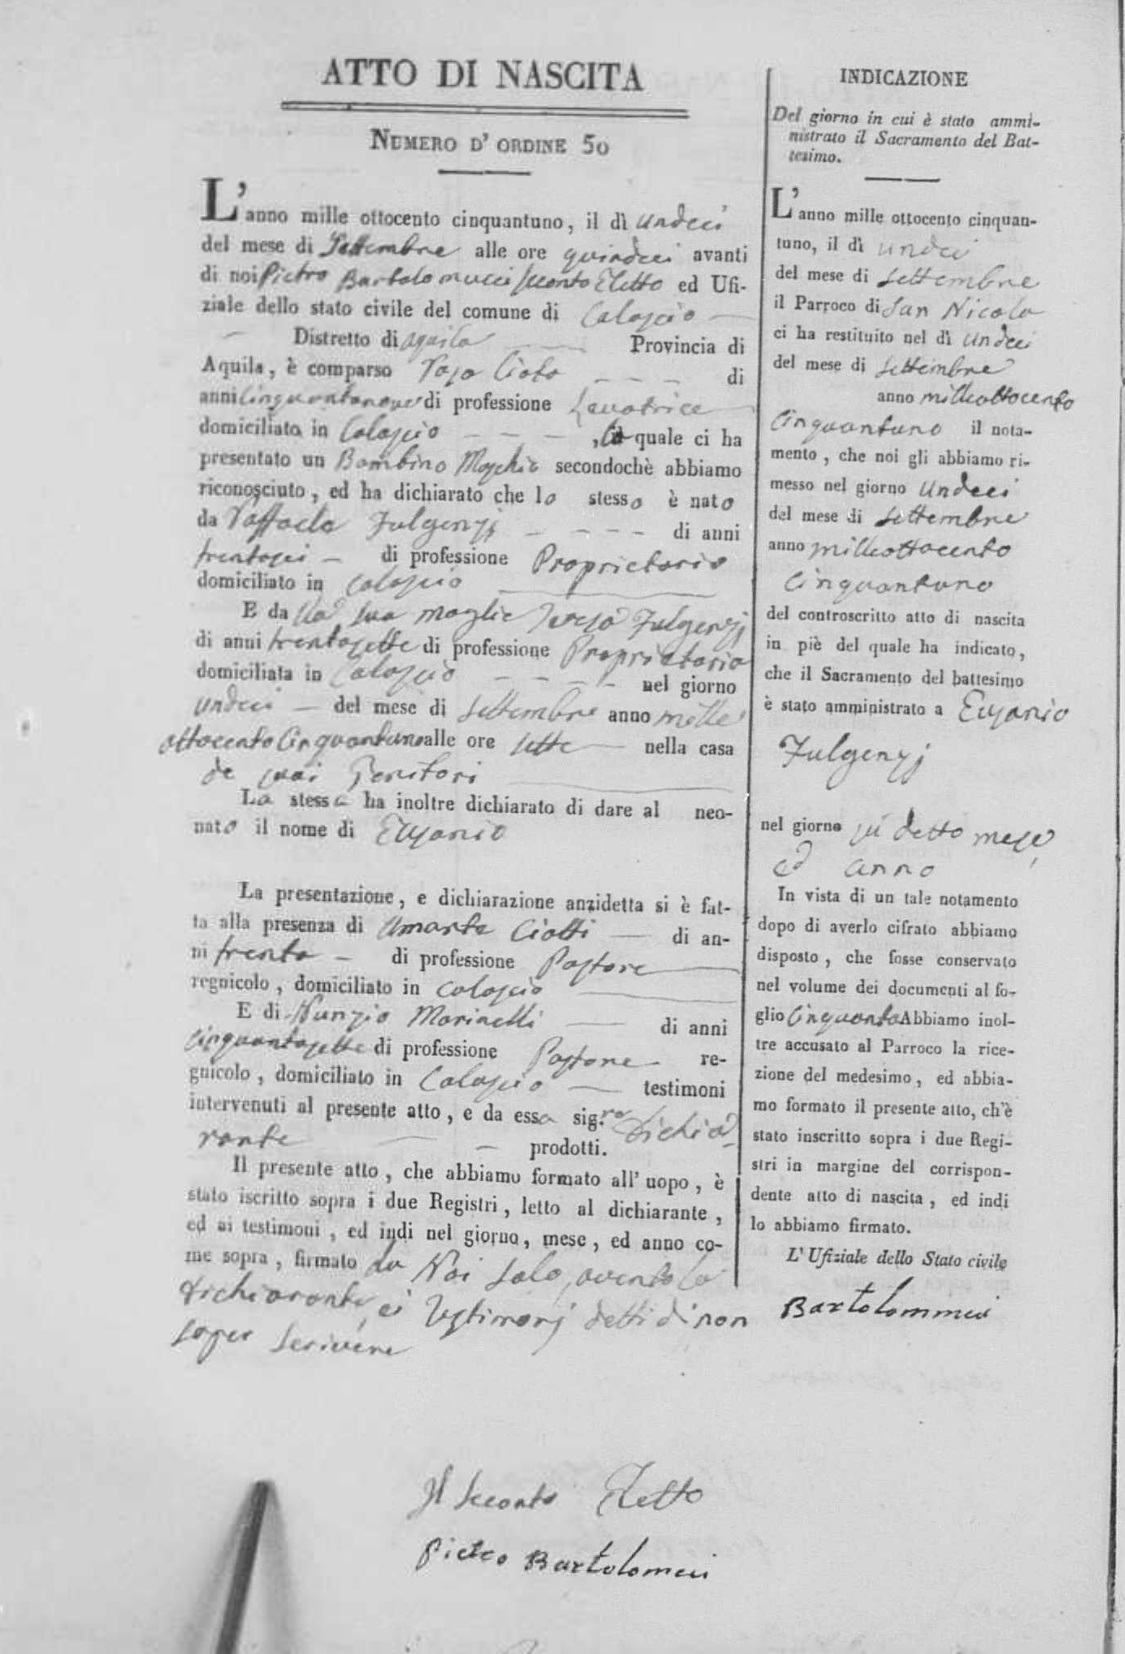 ATTO DI NASCITA
NUMERO D' ORDINE 50
L'anno mille ottocento cinquantuno, il dì undeci
del mese di Settembre alle ore quindeci avanti
di noi Pietro Bartolomucci Seconto Eletto ed Ufi-
ziale dello stato civile del comune di Calascio
Distretto di aquila Provincia di
Aquila, è comparso Rosa Ciota di
anni Cinquantanove di professione Levatrice
domiciliata in Calascio , la quale ci ha
presentato un Bambino Maschio secondochè abbiamo
riconosciuto, ed ha dichiarato che lo stesso è nato
da Raffaele Fulgenzj di anni
trentasei di professione Proprietario
domiciliato in Calascio
E da la sua moglie Teresa Fulgenzj
di anni trentasette di professione Proprietaria
domiciliata in Calascio nel giorno
undeci del mese di Settembre anno mille
ottocento Cinquantuno alle ore sette nella casa
de suoi Genitori
La stessa ha inoltre dichiarato di dare al neo-
nato il nome di Eusanio
La presentazione, e dichiarazione anzidetta si è fat-
ta alla presenza di Amante Ciotti di an-
ni trenta di professione Pastore
regnicolo, domiciliato in Calascio
E di Nunzio Marinelli di anni
Cinquantasette di professione Pastore re-
gnicolo, domiciliato in Calascio testimoni
intervenuti al presente atto, e da essa sig.ra Dichia-
rante prodotti.
Il presente atto, che abbiamo formato all' uopo, è
stato iscritto sopra i due Registri, letto al dichiarante,
ed ai testimoni, ed indi nel giorno, mese, ed anno co-
me sopra, firmato da Noi solo, avendo la
dichiarante, ei Testimonj detti di non
saper scrivere
Il Seconto Eletto
Pietro Bartolomeii
INDICAZIONE
Del giorno in cui è stato ammi-
nistrato il Sacramento del Bat-
tesimo.
L'anno mille ottocento cinquan-
tuno, il dì undeci
del mese di Settembre
il Parroco di San Nicola
ci ha restituito nel dì undeci
del mese di Settembre
anno milleottocento
Cinquantuno il nota-
mento, che noi gli abbiamo ri-
messo nel giorno undeci
del mese di Settembre
anno milleottocento
Cinquantuno
del controscritto atto di nascita
in piè del quale ha indicato,
che il Sacramento del battesimo
è stato amministrato a Eusanio
Fulgenzj
nel giorno su detto mese
ed anno
In vista di un tale notamento
dopo di averlo cifrato abbiamo
disposto, che fosse conservato
nel volume dei documenti al fo-
glio Cinquanta Abbiamo inol-
tre accusato al Parroco la rice-
zione del medesimo, ed abbia-
mo formato il presente atto, ch'è
stato inscritto sopra i due Regi-
stri in margine del corrispon-
dente atto di nascita, ed indi
lo abbiamo firmato.
L' Ufiziale dello Stato civile
Bartolommeii